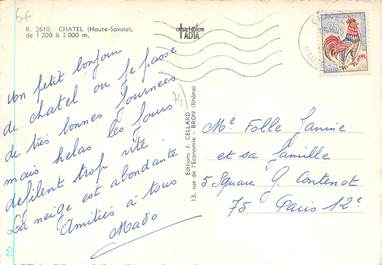 R. 2610. CHATEL (Haute-Savoie),
de 1 200 à 2 000 m.
Un petit bonjour
de chatel ou je passe
de très bonnes journées
mais helas les jours
defilent trop vite
La neige est abondante
Amitiés à tous
Mado
Editions J. CELLARD
13, rue de l'Economie - BRON (Rhône)
Me Folle Janine
et sa famille
5 Square G Contenot
75 Paris 12e